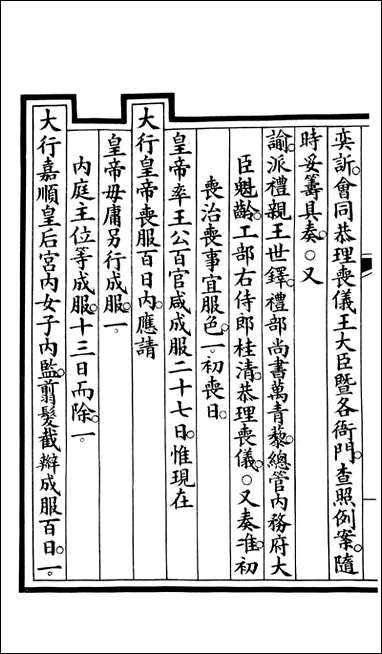 奕訢。會同恭理喪儀王大臣暨各衙門。查照例案。隨
時妥籌具奏。○又
諭派禮親王世鐸。禮部尚書萬青藜。總管內務府大
臣魁齡。工部右侍郎桂清。恭理喪儀。○又奏准。初
喪治喪事宜服色。一。初喪日。
皇帝率王公百官咸成服二十七日。惟現在
大行皇帝喪服百日內。應請
皇帝毋庸另行成服。一。
內庭王位等成服。十三日而除。一。
大行嘉順皇后宮內女子內監。翦髮截辮成服百日。一。